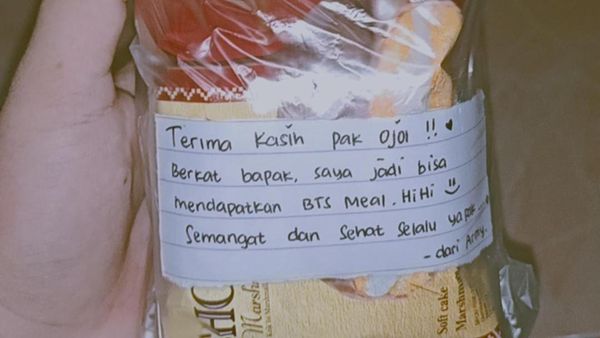 Terima Kasih pak Ojol !! ♥
Berkat bapak, saya jadi bisa
mendapatkan BTS Meal. HiHi
Semangat dan sehat selalu ya pak
- dari Army.
Marsh
Soft cake
Marshm